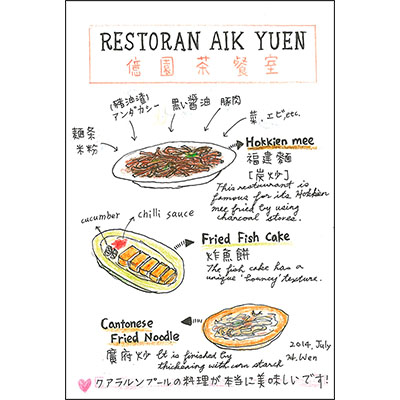 RESTORAN AIK YUEN
億園茶餐室
(豬油渣)
アンダカシー
黒い醤油
豚肉
菜、エビ,etc.
麵条
米粉
Hokkien mee
福建麵
[炭炒]
This restaurant is
famous for its Hokkien
mee fried by using
charcoal stoves.
cucumber
chilli sauce
Fried Fish Cake
炸魚餅
The fish cake has a
unique 'bouncy' texture.
Cantonese
Fried Noodle
廣府炒 It is finished by
thickening with corn starch
2014, July
H.Wen
クアラルンプールの料理が本当に美味しいです!